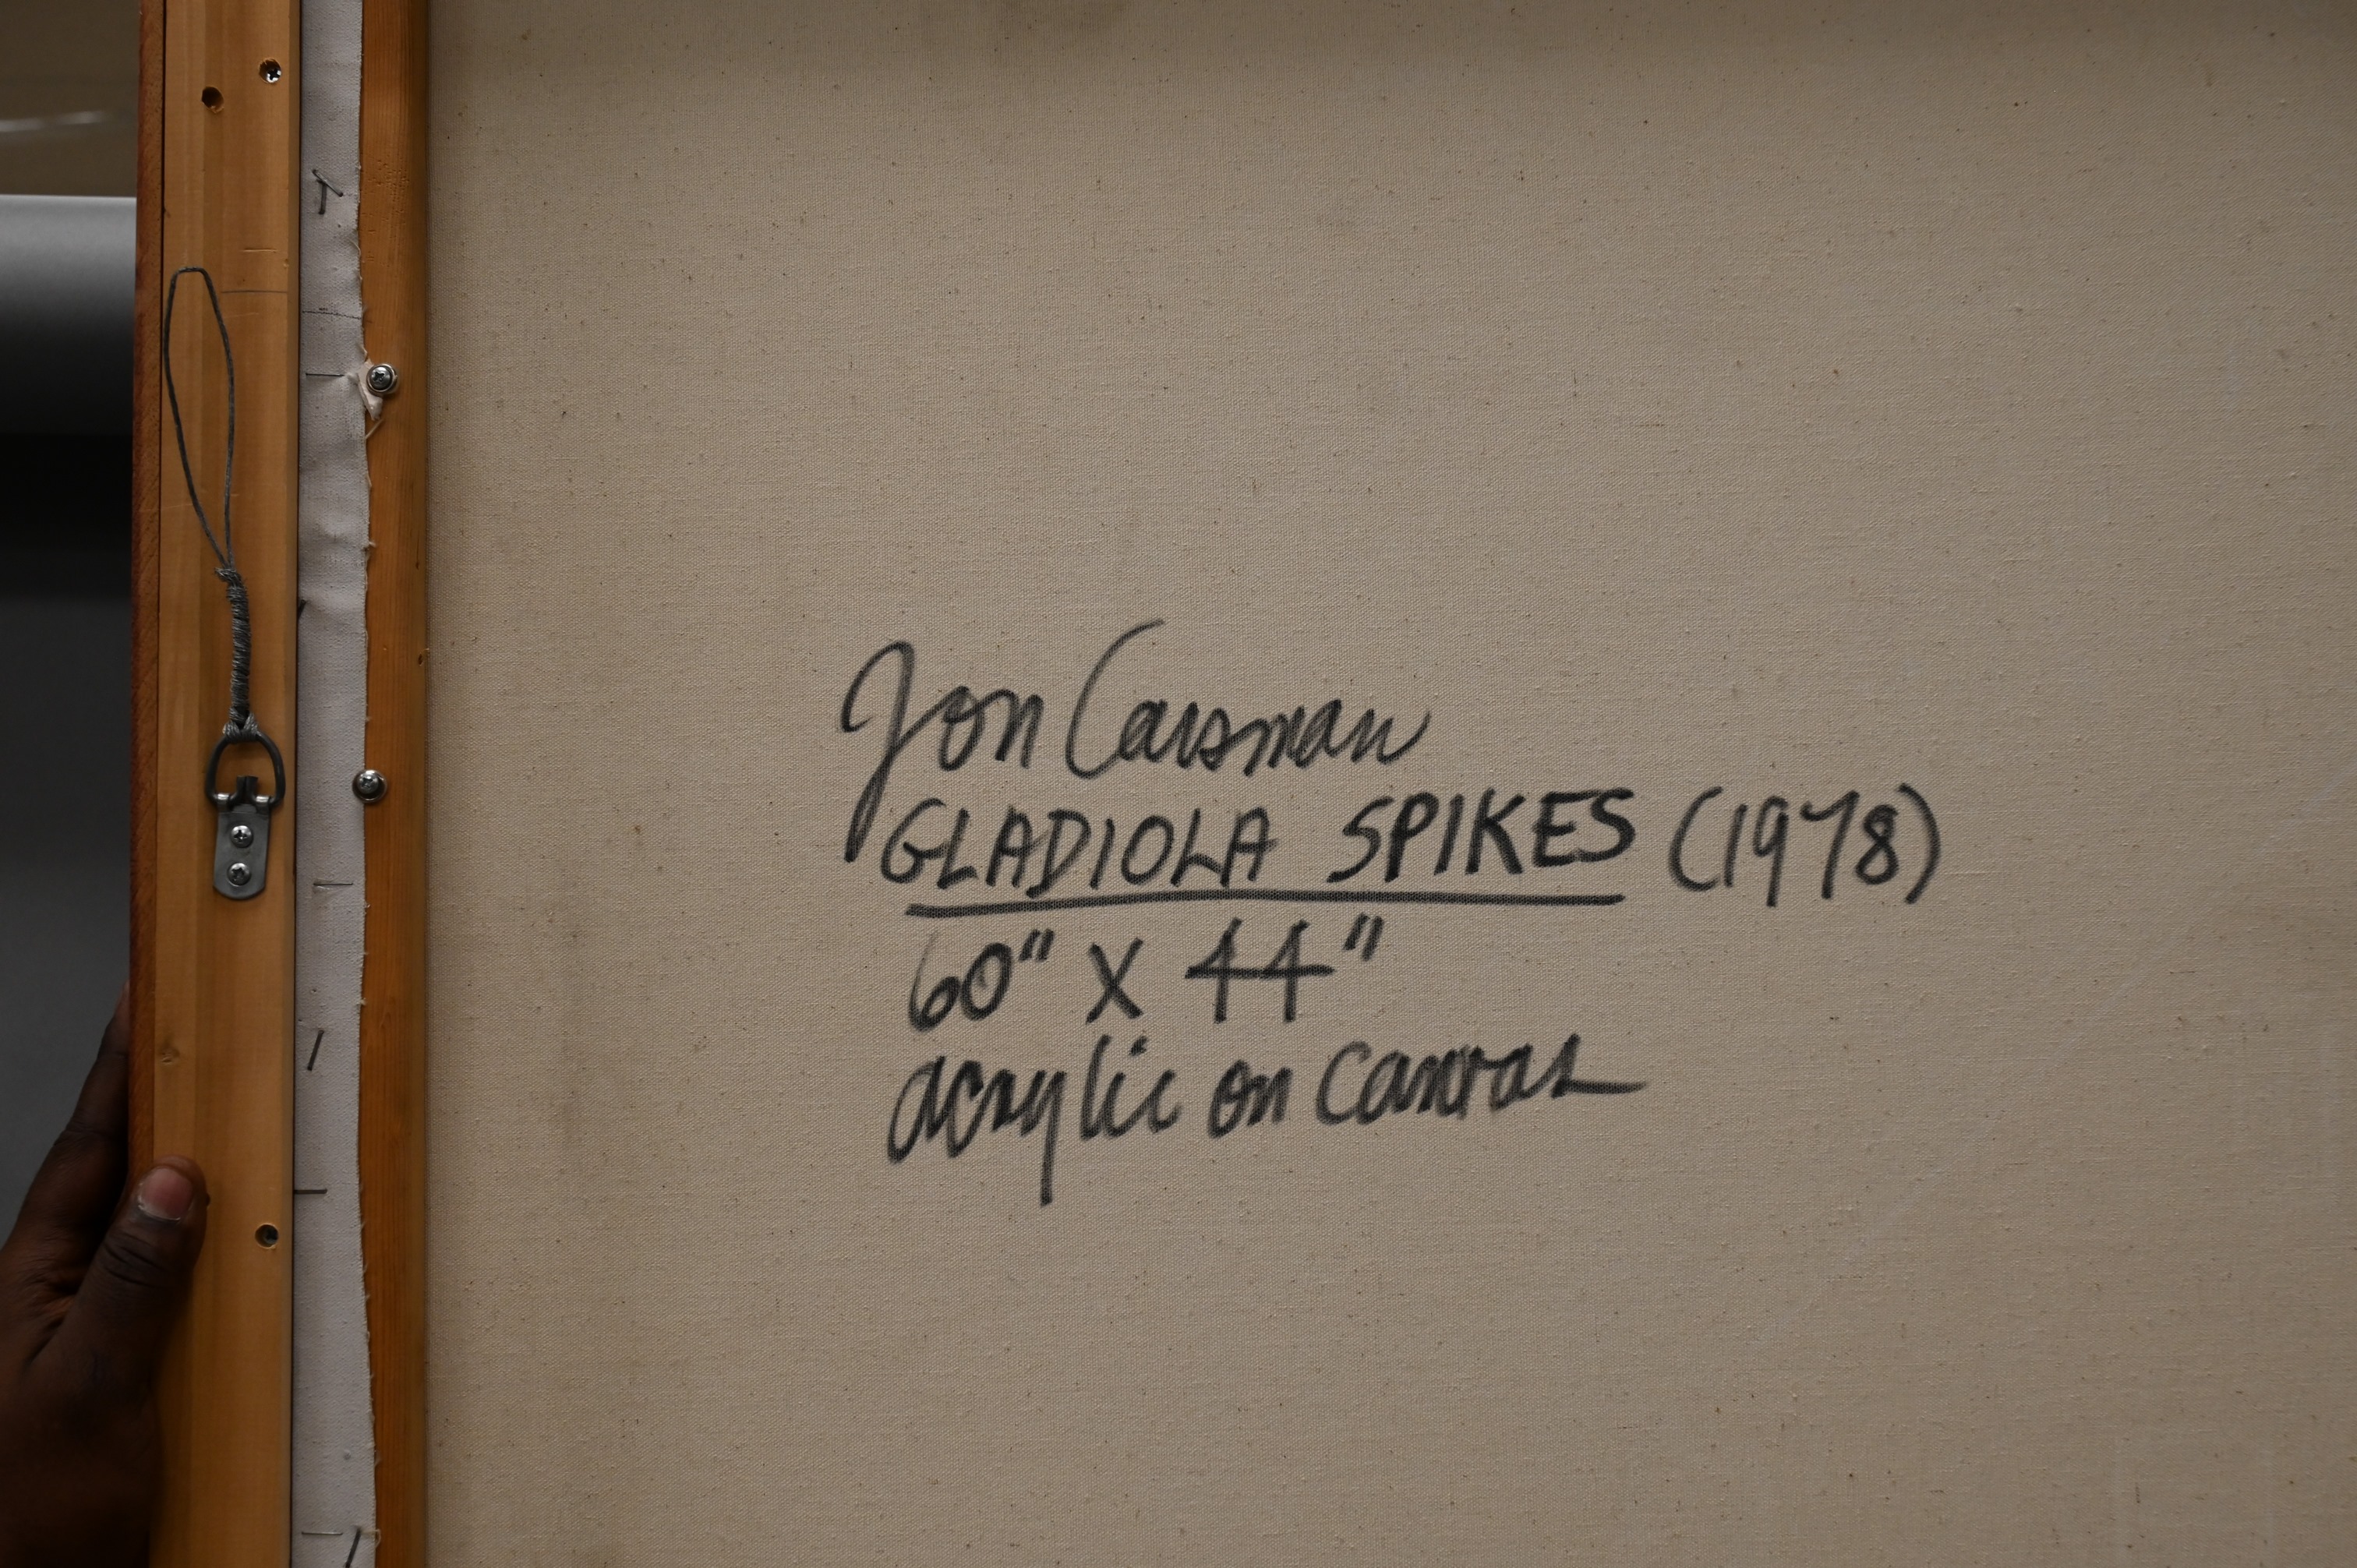 Jon Carsman
GLADIOLA SPIKES (1978)
60" X 44"
acrylic on canvas